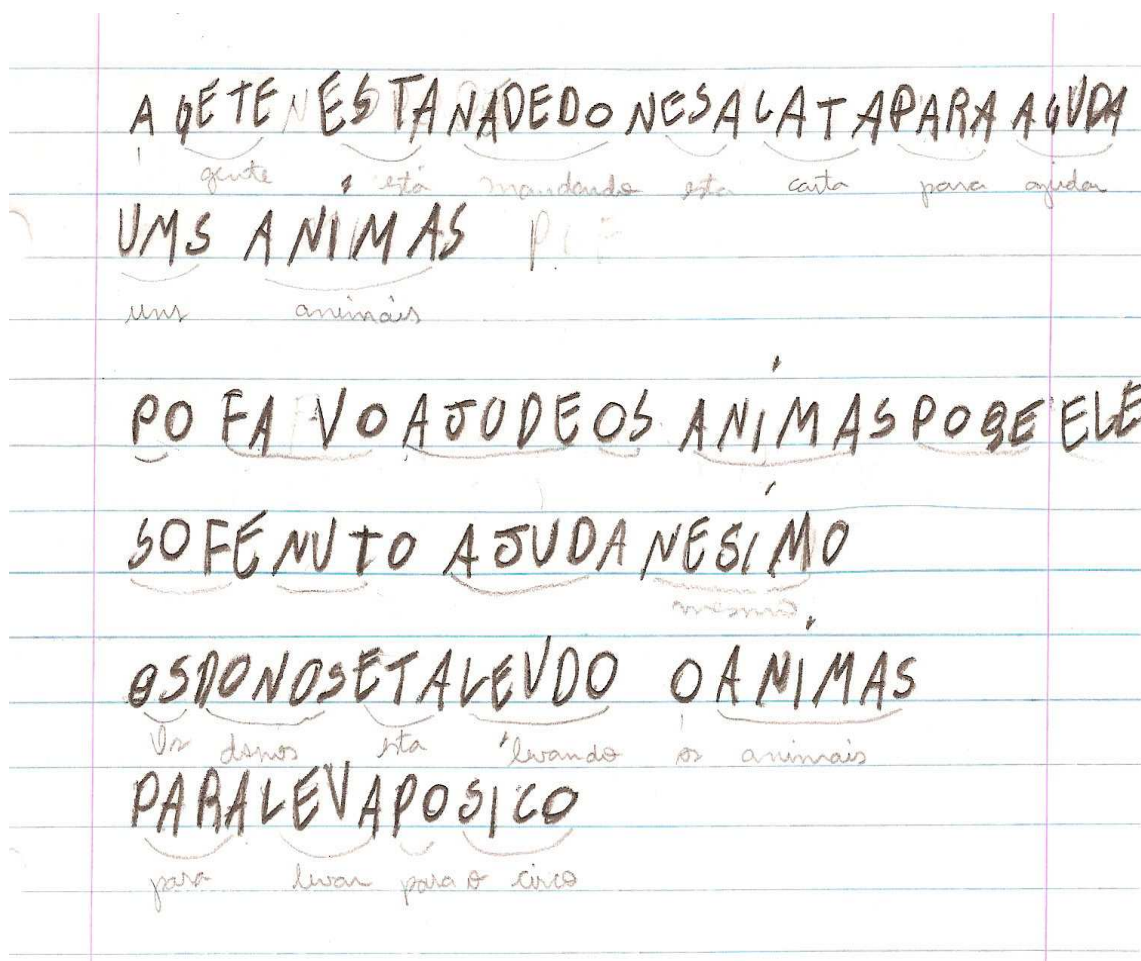 A GETE ESTA NADEDO NESA CATA PARA AGUDA
gente está mandando esta carta para ajudar
UMS ANIMAS
uns animais
PO FAVO AJUDE OS ANÍMAS POQE ELE
SOFE NUTO AJUDA NESÍMO
mesmo
OS DONOS ETA LEVDO O ANÍMAS
Os donos esta levando os animais
PARA LEVA PO SICO
para levar para o circo